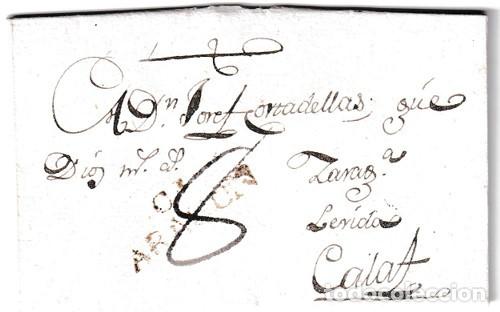 A Dn. Josef Cortadellas; gúe
Dios ms. as.
Zaragª
8
Lerida
Calaf
todocoleccion